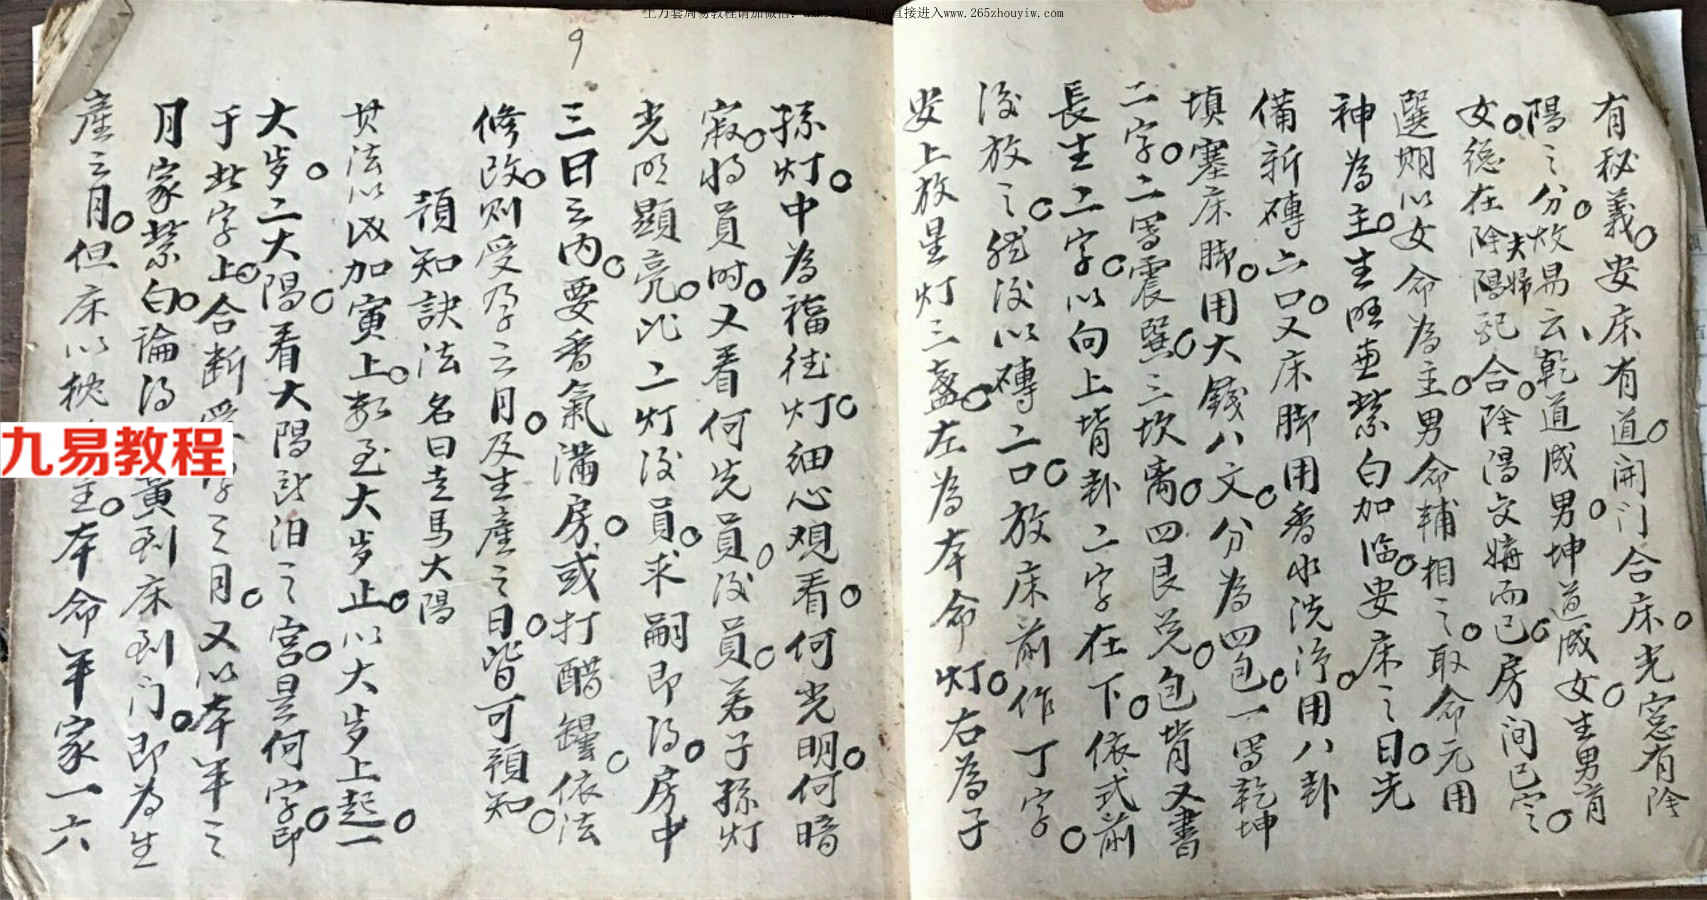 直接进入www.265zhouyiw.com
9
九易教程
有秘義安床有道開门合床光窓有陰
陽之分故易云乾道成男坤道成女生男育
女德在陰陽配合陰陽交媾而已房间已定
夫婦
選期以女命為主男命輔相之取命元用
神為主生旺並紫白加临安床之日先
備新磚六口又床脚用香水洗净用八卦
填塞床脚用大錢八文分為四包一寫乾坤
二字二寫震巽三坎离四艮兑包背又書
長生二字以向上背卦二字在下依式前
後放之然後以磚二口放床前作丁字
安上放星灯三盞左為本命灯右為子
孫灯中為福徒灯细心观看何光明何暗
寂将員时又看何先員後員若子孫灯
光明顯亮此二灯後員求嗣即得房中
三日之内要香氣满房或打醋罐依法
修改则受孕之月及生產之日皆可預知
預知訣法名曰走馬大陽
其法以 加寅上数至大岁止以大岁上起一
大岁二大陽看大陽到泊之宮是何字即
于此字上合断受孕之月又以本年之
月家紫白論得 黄到床到门即为生
產之月但床以枕 主本命年家一六